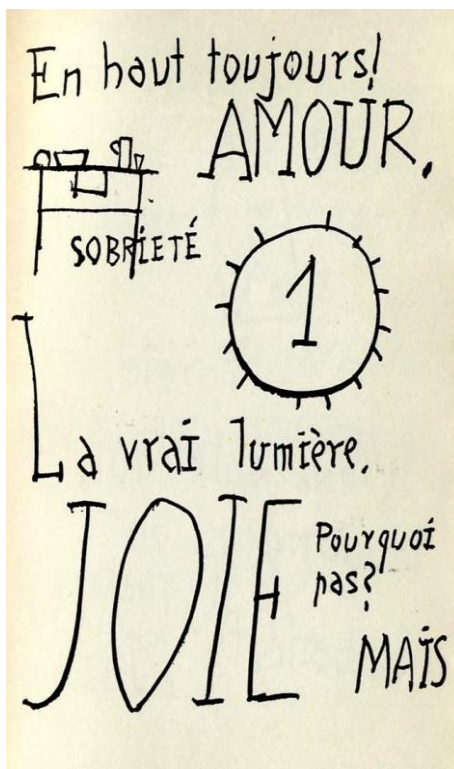 En haut toujours!
AMOUR.
SOBRIETÉ
1
La vrai lumière.
JOIE
Pourquoi
pas?
MAIS